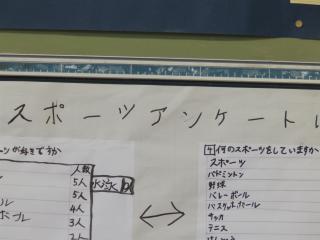 スポーツアンケート
ーツが好きですか
人数
5人
5人
4人
3人
水泳
何のスポーツをしていますか
スポーツ
バドミントン
野球
バレーボール
バスケットボール
サッカ
テニス